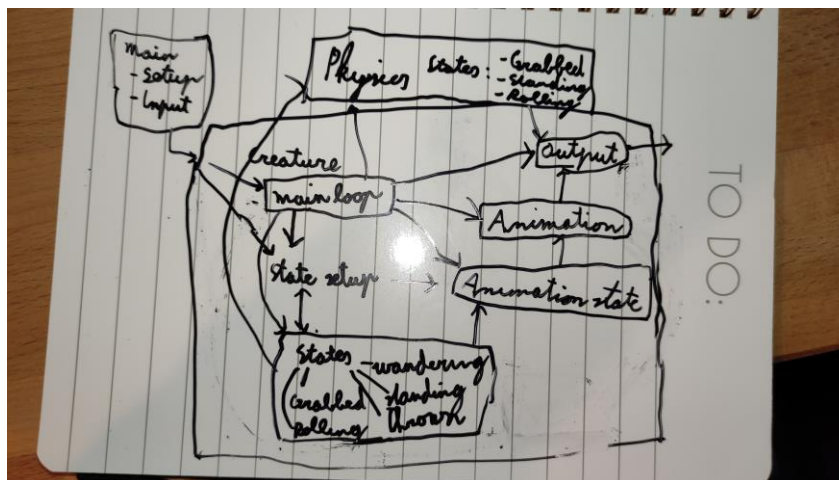 main
- Setup
- Input
Physics States: - Grabbed
- Standing
- Rolling
Creature
main loop
Output
Animation
State setup
Animation state
States - wandering
Grabbed standing
Rolling thrown
TO DO: